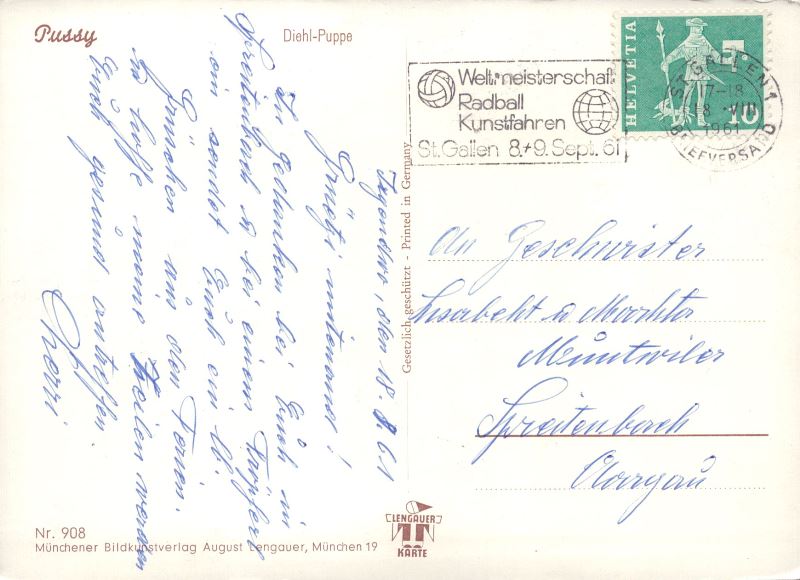 Pussy
Diehl-Puppe
Irgendwo, den 18. 8. 61
Grüetzi mitenand!
In Gedanken bei Euch in
Spreitenbach & bei einem
ein sendet Euch ein lb.
Grüschen aus den Ferien.
hoffe meine Zeilen werden
Euch gesund antreffen
Nr. 908
Münchener Bildkunstverlag August Lengauer, München 19
LENGAUER
KARTE
Gesetzlich geschützt - Printed in Germany
Weltmeisterschaft
Radball
Kunstfahren
St. Gallen 8.+9. Sept. 61
HELVETIA
10
ST. GALLEN 1
17-18
18. VIII
1961
BRIEFVERSAND
An Geschwister
Lisabeht & Martha
Muntwiler
Spreitenbach
Aargau